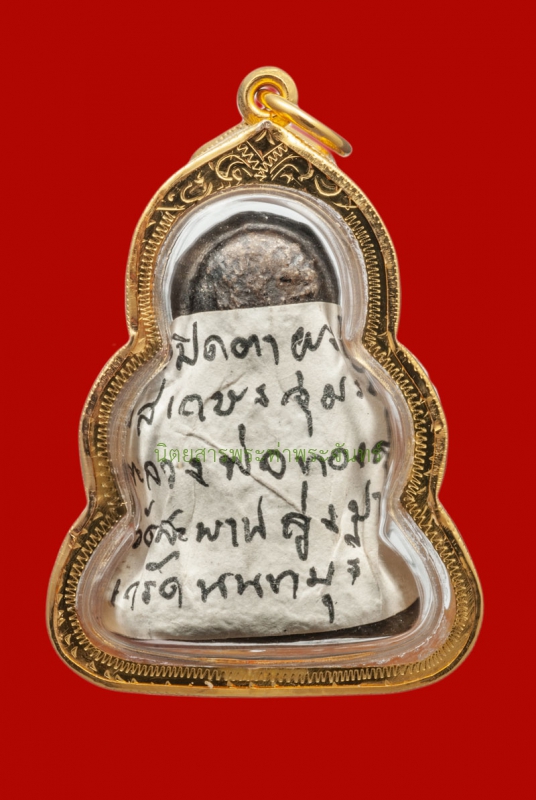 ปิดตา ผง
สีเกษร จุ่ม
นิตยสารพระท่าพระจันทร์
หลวงพ่อทอง
วัดสะพานสูง ปา
เกร็ด นนทบุรี